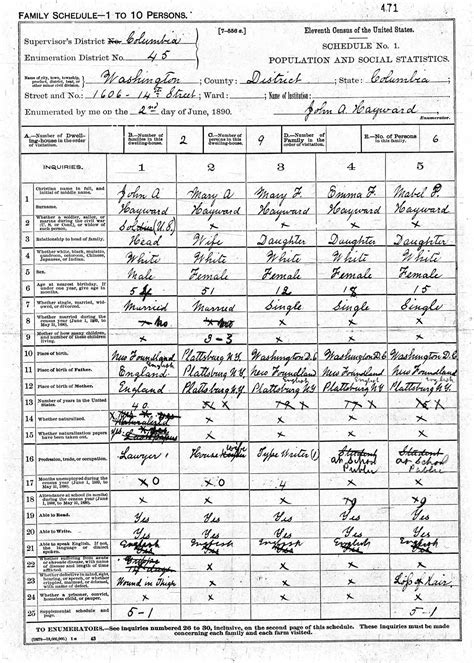 471
FAMILY SCHEDULE—1 TO 10 PERSONS.
[7-556 c.]
Eleventh Census of the United States.
Supervisor's District No. Columbia
SCHEDULE No. 1.
Enumeration District No. 45
POPULATION AND SOCIAL STATISTICS.
Name of city, town, township, precinct, district, beat, or other minor civil division. Washington County: District State: Columbia
Street and No.: 1606-14th Street; Ward: Name of Institution:
Enumerated by me on the 2nd day of June, 1890. John A. Hayward
Enumerator.
A.—Number of Dwelling-house in the order of visitation. B.—Number of families in this dwelling-house. 2 C.—Number of persons in this dwelling-house. 9 D.—Number of Family in the order of visitation. E.—No. of Persons in this family. 6
INQUIRIES. 1 2 3 4 5
1 Christian name in full, and initial of middle name. John A Mary A Mary F. Emma F. Mabel P.
Surname. Hayward Hayward Hayward Hayward Hayward
2 Whether a soldier, sailor, or marine during the civil war (U. S. or Conf.), or widow of such person. Soldier (U.S.) x x x x
3 Relationship to head of family. Head Wife Daughter Daughter Daughter
4 Whether white, black, mulatto, quadroon, octoroon, Chinese, Japanese, or Indian. White White White White White
5 Sex. Male Female Female Female Female
6 Age at nearest birthday. If under one year, give age in months. 51 18 15
7 Whether single, married, widowed, or divorced. Married Married Single Single Single
8 Whether married during the census year (June 1, 1889, to May 31, 1890). x x x
9 Mother of how many children, and number of these children living. x 3-3 x x x
10 Place of birth. New Foundland Plattsburg N.Y. Washington D.C Washington D.C Washington D.C
11 Place of birth of Father. England Plattsburg N.Y. New Foundland New Foundland New Foundland
12 Place of birth of Mother. England Plattsburg N.Y. Plattsburg N.Y Plattsburg N.Y Plattsburg N.Y
13 Number of years in the United States. 40 x x x x
14 Whether naturalized. Naturalized x x x x
15 Whether naturalization papers have been taken out. x x x x
16 Profession, trade, or occupation. Lawyer House wife Type Writer Student at School Public Student at School Public
17 Months unemployed during the census year (June 1, 1889, to May 31, 1890). x 0 x 0 4 x x
18 Attendance at school (in months) during the census year (June 1, 1889, to May 31, 1890). x x x
19 Able to Read. Yes Yes Yes Yes Yes
20 Able to Write. Yes Yes Yes Yes Yes
21 Able to speak English. If not, the language or dialect spoken. English English English English English
22 Whether suffering from acute or chronic disease, with name of disease and length of time afflicted. x x x x
23 Whether defective in mind, sight, hearing, or speech, or whether crippled, maimed, or deformed, with name of defect. Wound in Thigh x x x Loss of Hair
24 Whether a prisoner, convict, homeless child, or pauper. x x x x x
25 Supplemental schedule and page. 5-1 5-1
TO ENUMERATORS.—See inquiries numbered 26 to 30, inclusive, on the second page of this schedule. These inquiries must be made concerning each family and each farm visited.